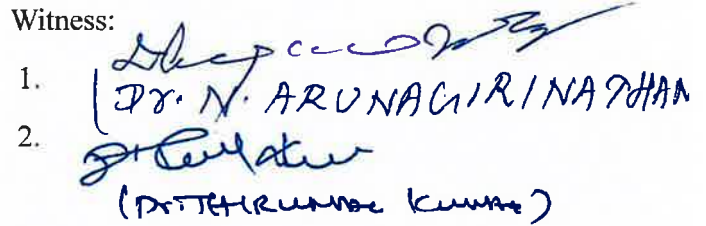 Witness:
1.
(Dr. N. ARUNAGIRINATHAN
2.
(Dr. THIRUMAL KUMAR)